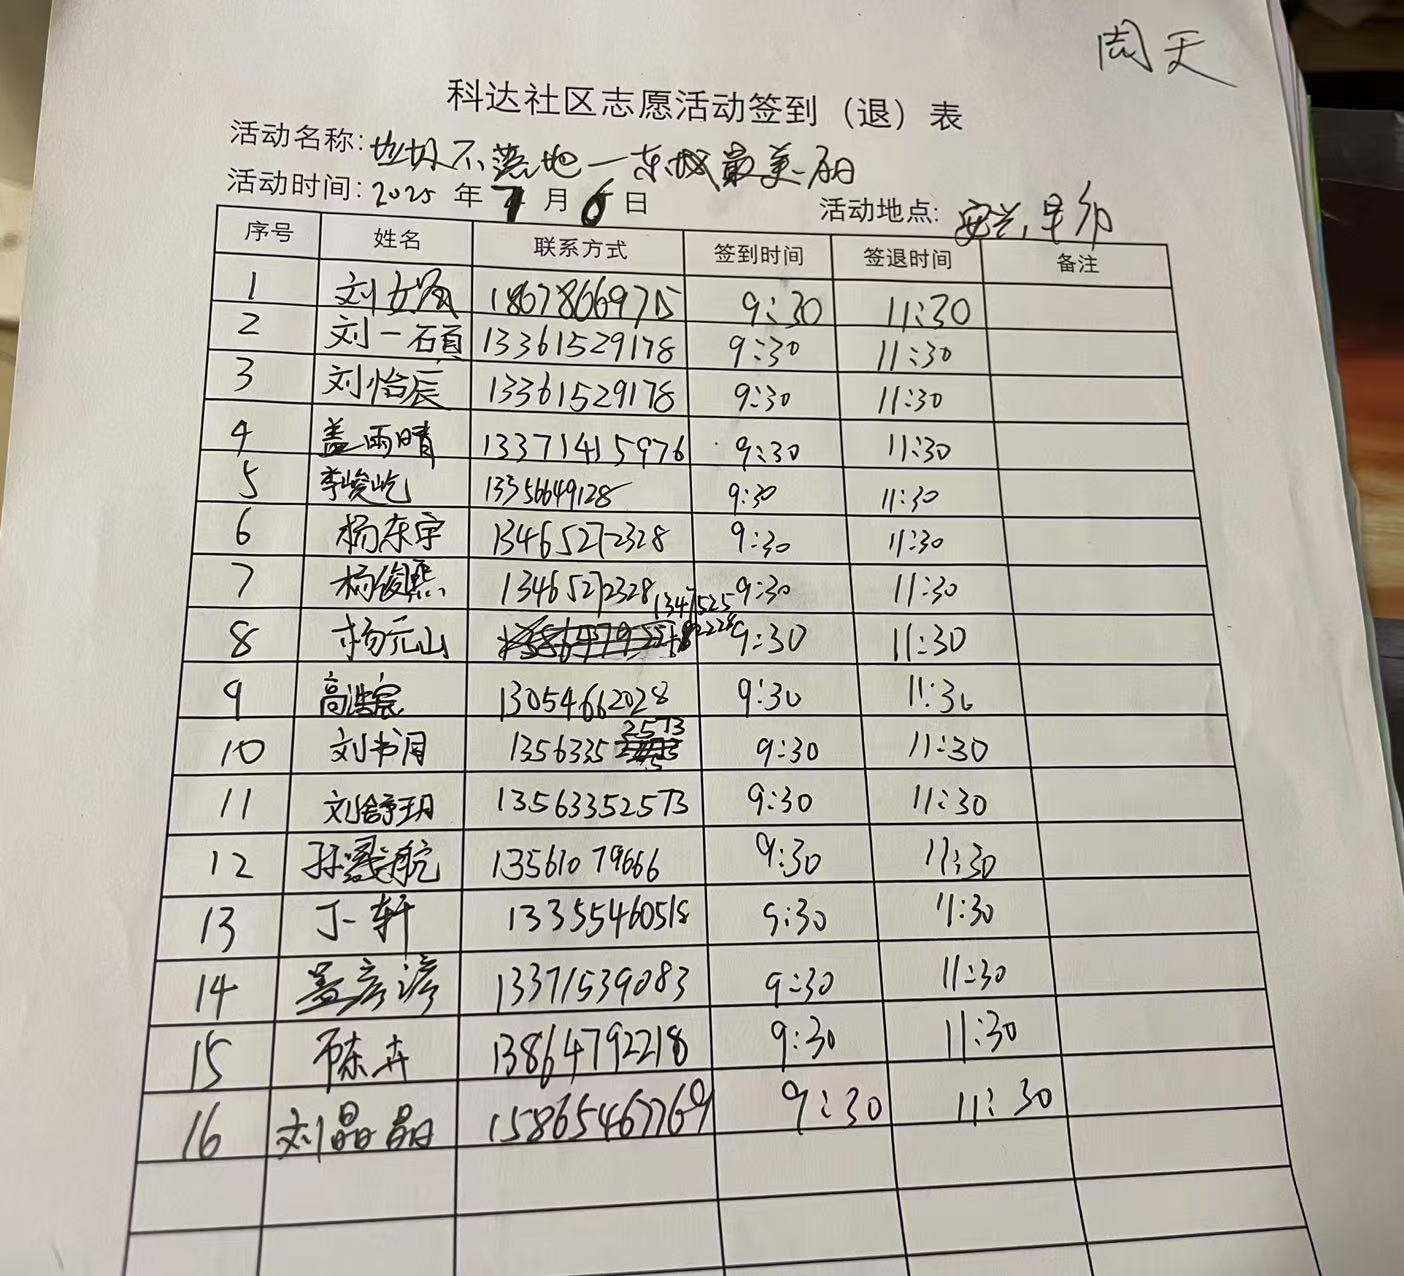 周天
科达社区志愿活动签到（退）表
活动名称: 垃圾不落地一东城最美丽
活动时间: 2025 年 7 月 6 日 活动地点: 安兴
序号 姓名 联系方式 签到时间 签退时间 备注
1 刘 18678669715 9:30 11:30
2 刘一硕 13361529178 9:30 11:30
3 刘怡辰 13361529178 9:30 11:30
4 盖雨晴 13371415976 9:30 11:30
5 李峻屹 13356649128 9:30 11:30
6 杨东宇 13465272328 9:30 11:30
7 杨俊熙 13465272328 9:30 11:30
8 杨元山 9:30 11:30
9 高浩宸 13054662028 9:30 11:30
10 刘书月 13563352573 9:30 11:30
11 刘舒玥 13563352573 9:30 11:30
12 孙 航 13561079666 9:30 11:30
13 丁一轩 13355460518 9:30 11:30
14 盖彦 13371539083 9:30 11:30
15 陈卉 13864792218 9:30 11:30
16 刘晶晶 15865467769 9:30 11:30